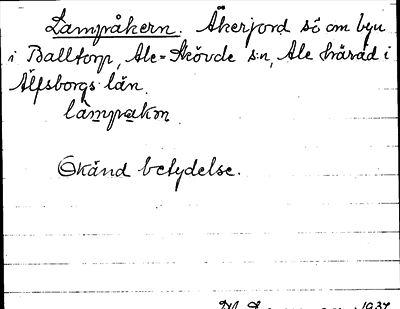 Lampåkern. Åkerjord sö om byn
i Balltorp, Ale-Skövde s:n, Ale härad i
Älfsborgs län.
lampakɷn
Okänd betydelse.
1937